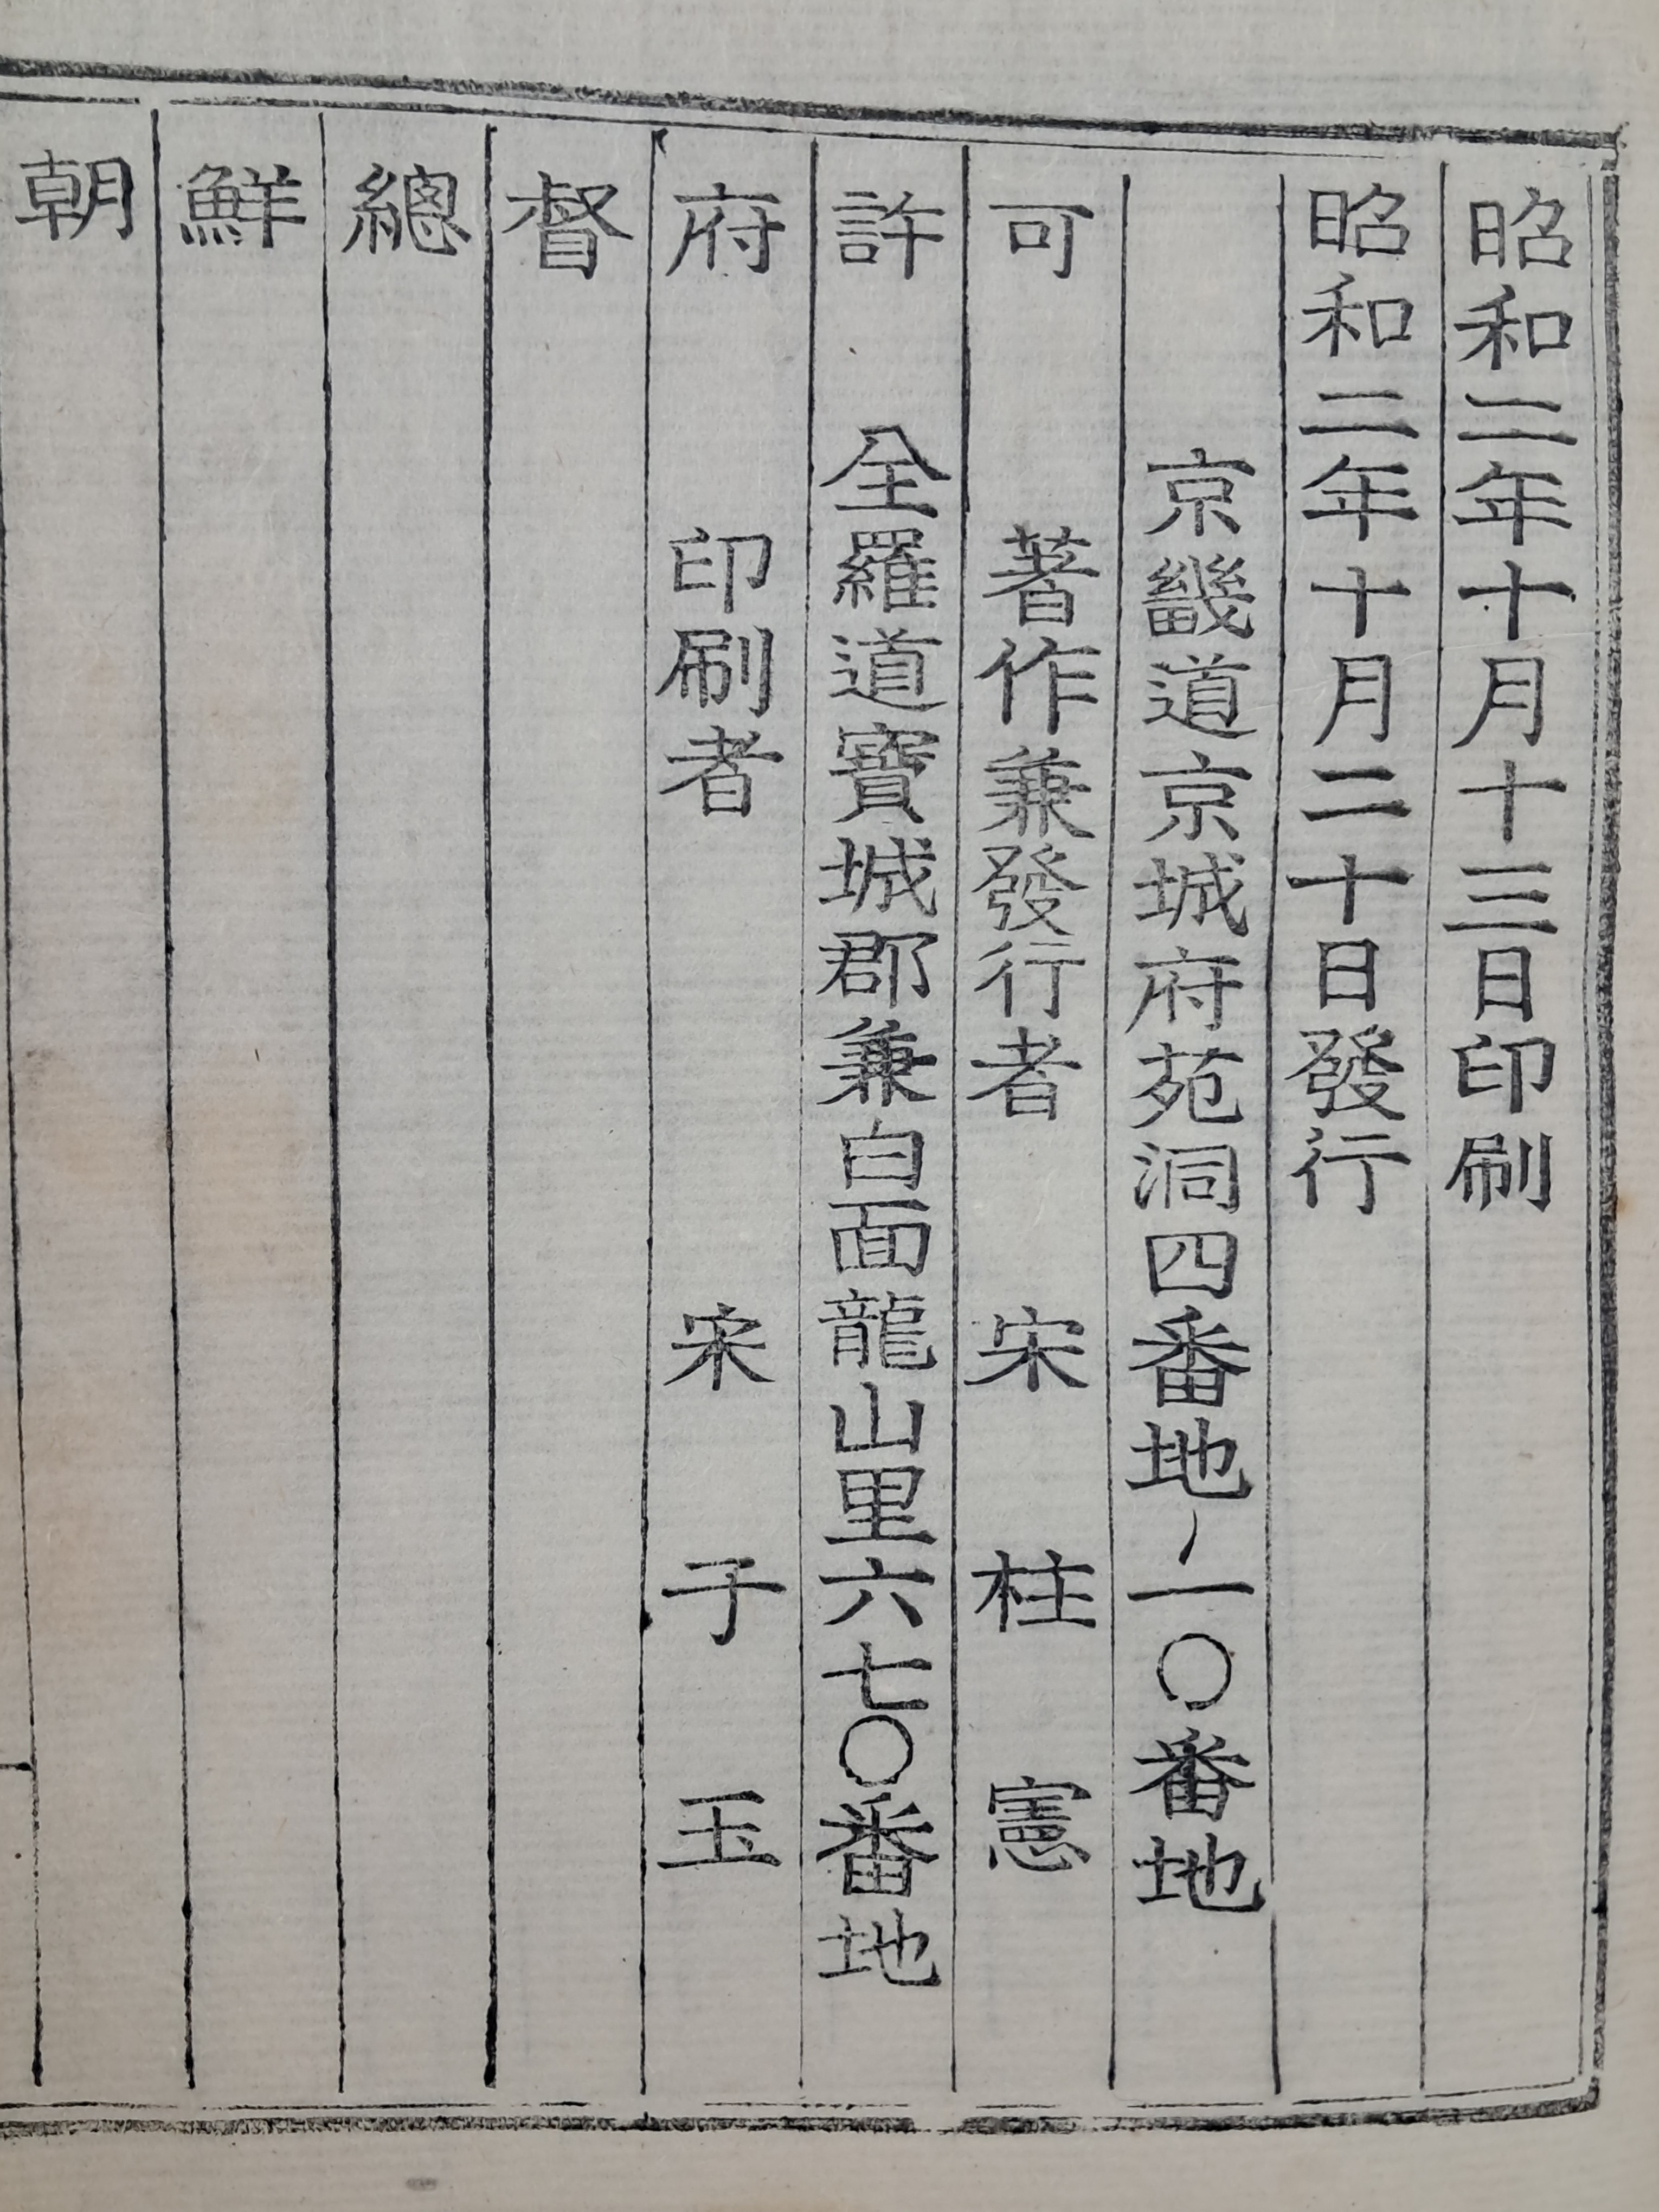 昭和二年十月十三日印刷
昭和二年十月二十日發行
京畿道京城府苑洞四番地ノ一〇番地
著作兼發行者 宋 柱 憲
全羅道寶城郡兼白面龍山里六七〇番地
印刷者 宋 子 玉
朝鮮總督府許可